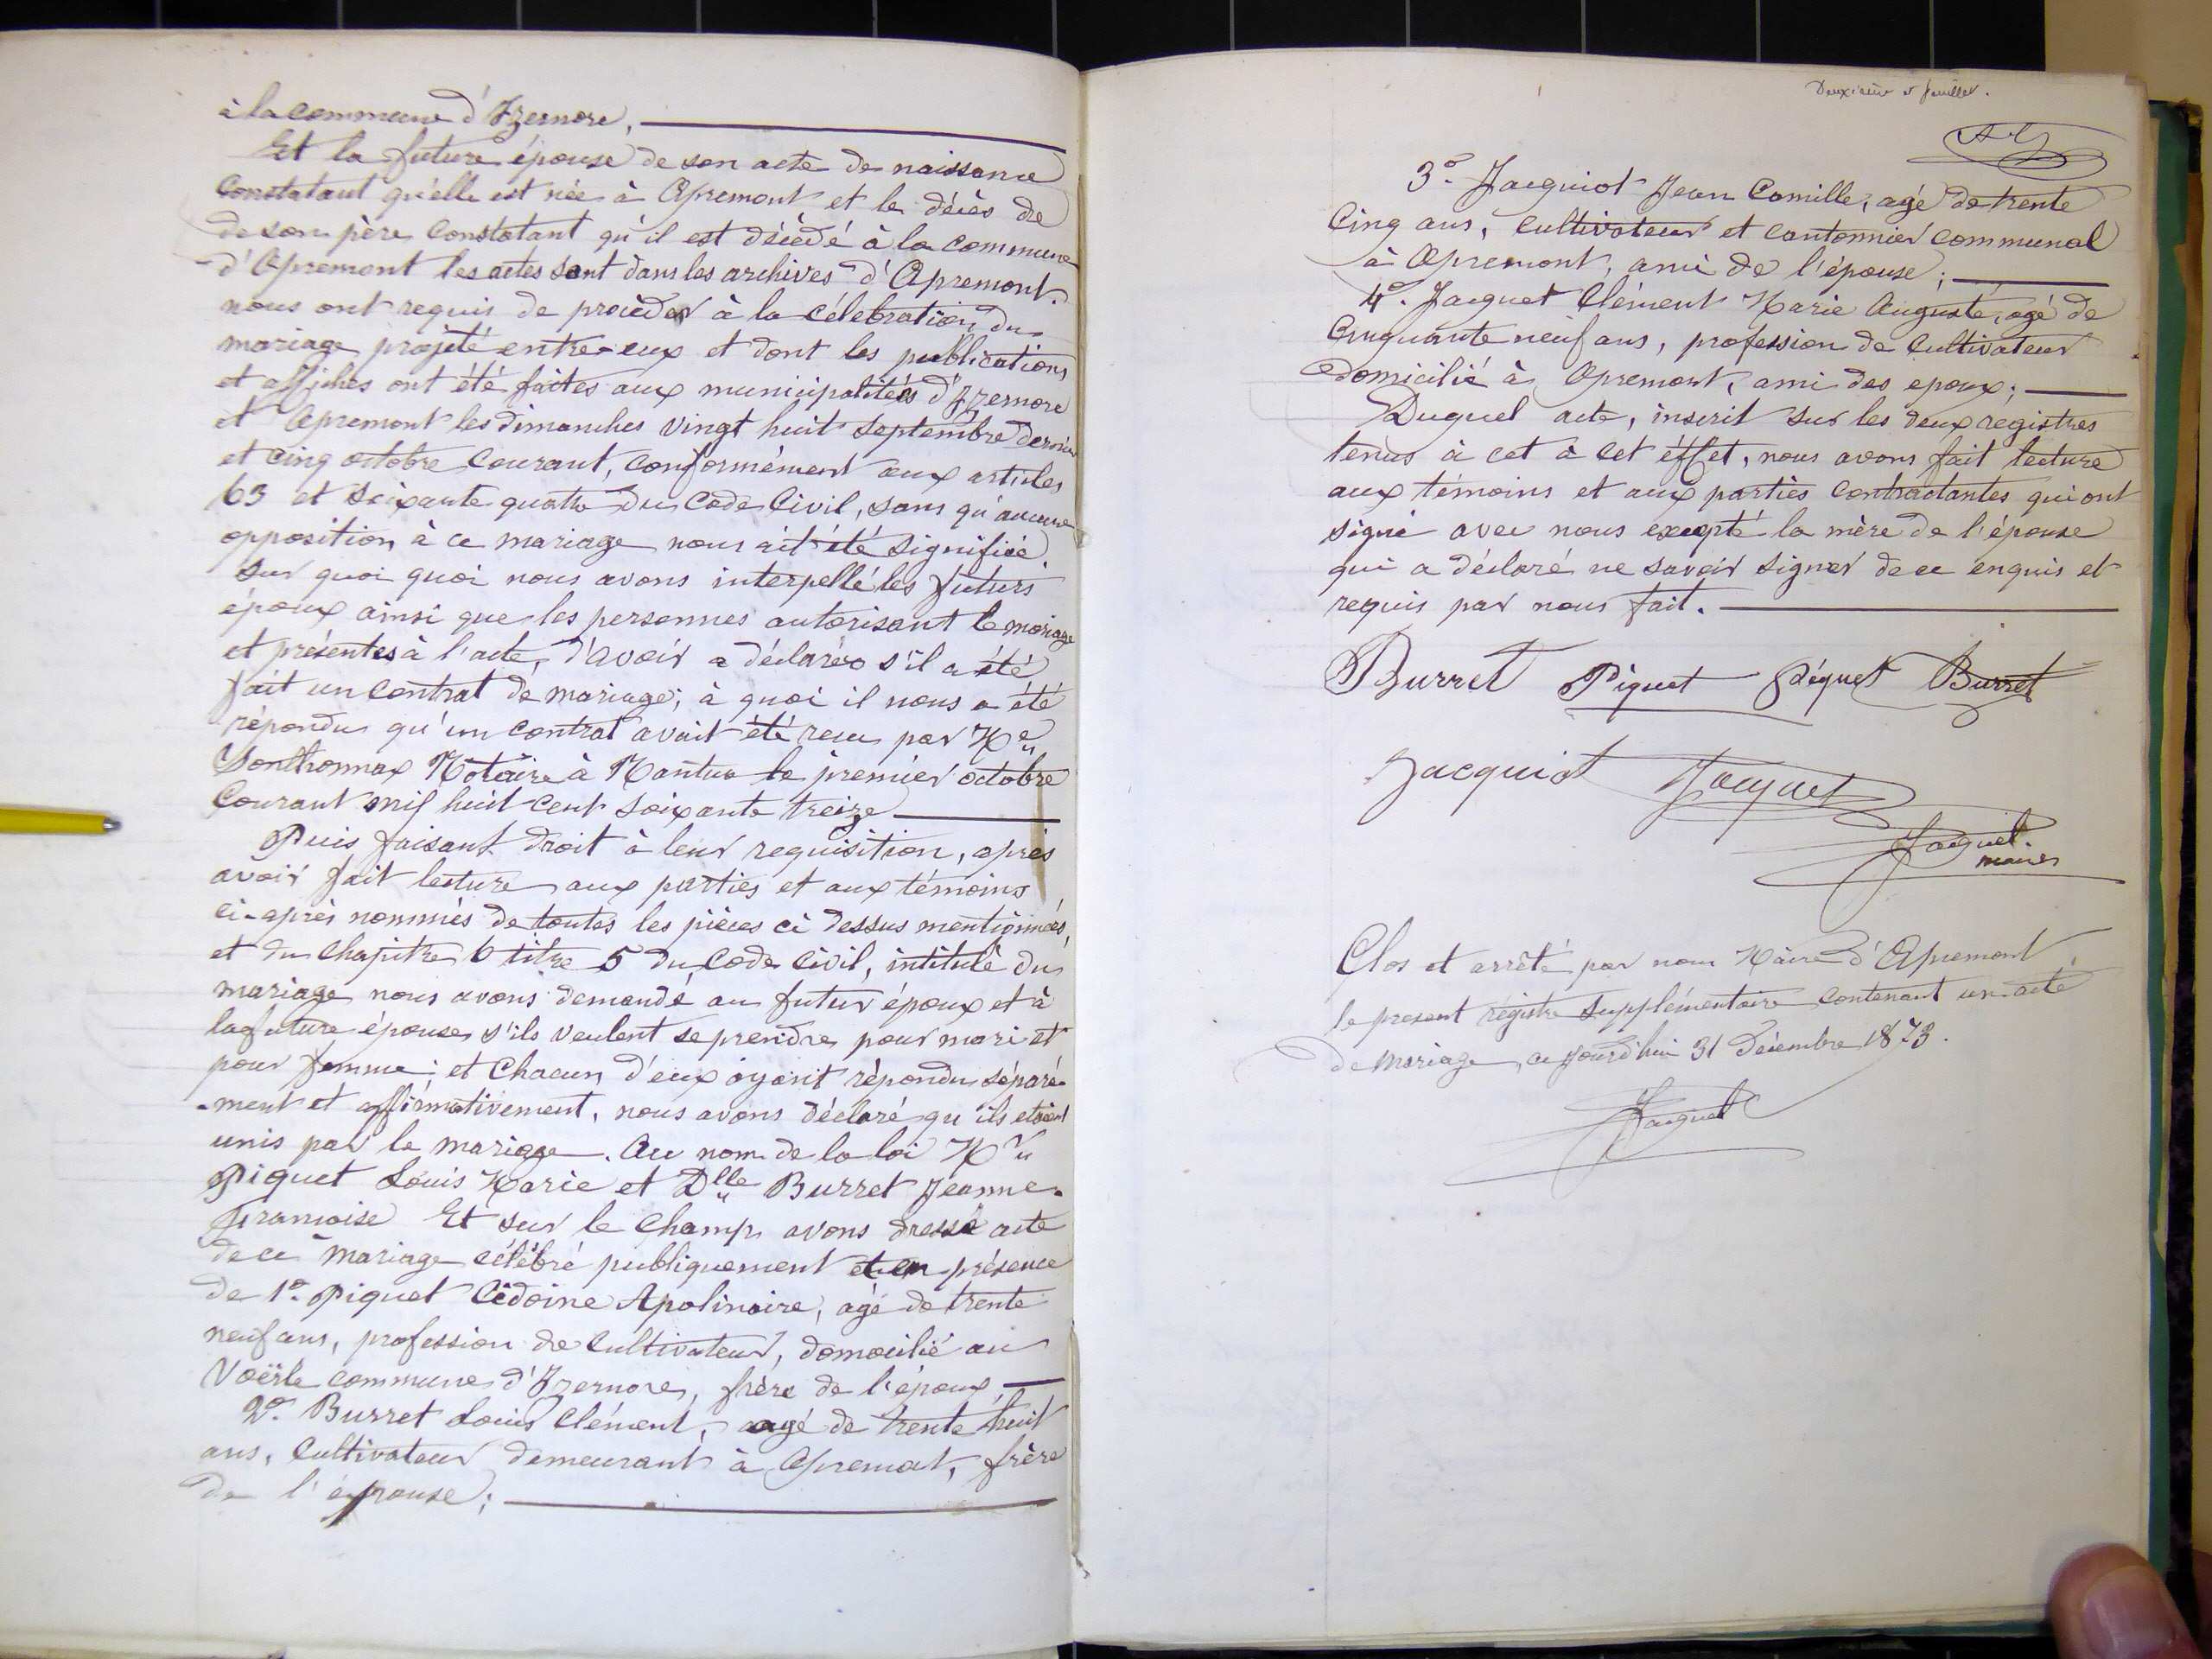 à la commune d'Izernore,
Et la future épouse de son acte de naissance
Constatant qu'elle est née à Apremont et le décès de
de son père Constatant qu'il est décédé à la commune
d'Apremont les actes sont dans les archives d'Apremont.
nous ont requis de procéder à la célébration du
mariage projeté entre-eux et dont les publications
et affiches ont été faites aux municipalités d'Izernore
et Apremont les dimanches vingt huit Septembre dernier
et cinq octobre Courant, conformément aux articles
63 et soixante quatre du Code Civil, sans qu'aucune
opposition à ce mariage nous ait été signifiée.
Sur quoi quoi nous avons interpellé les futurs
époux ainsi que les personnes autorisant le mariage
et présentes à l'acte, d'avoir a déclarer s'il a été
fait un Contrat de mariage; à quoi il nous a été
répondu qu'un contrat avait été recu par Me
Sonthonnax Notaire à Nantua le premier octobre
Courant mil huit cent soixante treize
Puis faisant droit à leur requisition, après
avoir fait lecture aux parties et aux témoins
ci-après nommés de toutes les pièces ci dessus mentionnées,
et du Chapitre 6 titre 5 du Code Civil, intitulé du
mariage nous avons demandé au futur époux et à
la future épouse s'ils veulent se prendre pour mari et
pour femme; et Chacun d'eux ayant répondu séparé-
-ment et affirmativement, nous avons déclaré qu'ils etaient
unis par le mariage. Au nom de la loi Mr
Piguet Louis Marie et Dlle Burret Jeanne-
Francoise Et sur le Champ avons dressé acte
de ce mariage célébré publiquement et en présence
de 1º. Piguet Cidoine Apolinaire, agé de trente
neuf ans, profession de Cultivateur, domicilié au
Voërle commune d'Izernore, frère de l'époux,
2º. Burret Louis Clément, agé de trente huit
ans, Cultivateur demeurant à Apremont, frère
de l'épouse;
Deuxième et feuillet.
3º. Jacquiot Jean Camille, agé de trente
Cinq ans, Cultivateur et cantonnier communal
à Apremont, ami de l'épouse;
4º. Jacquet Clément Marie Auguste, agé de
Cinquante neuf ans, profession de Cultivateur
domicilié à Apremont, ami des epoux;
Duquel acte, inscrit sur les deux registres
tenus à cet à cet éffet, nous avons fait lecture
aux témoins et aux parties Contractantes qui ont
signé avec nous excepté la mère de l'épouse
qui a déclaré ne savoir signer de ce enquis et
requis par nous fait.
Burret Piguet Piguet Burret
Jacquiot Jacquet
Jacquet
maire
Clos et arrêté par nous Maire d'Apremont
le present régistre supplémentaire contenant un acte
de mariage, ce jourd'hui 31 Décembre 1873.
Jacquet